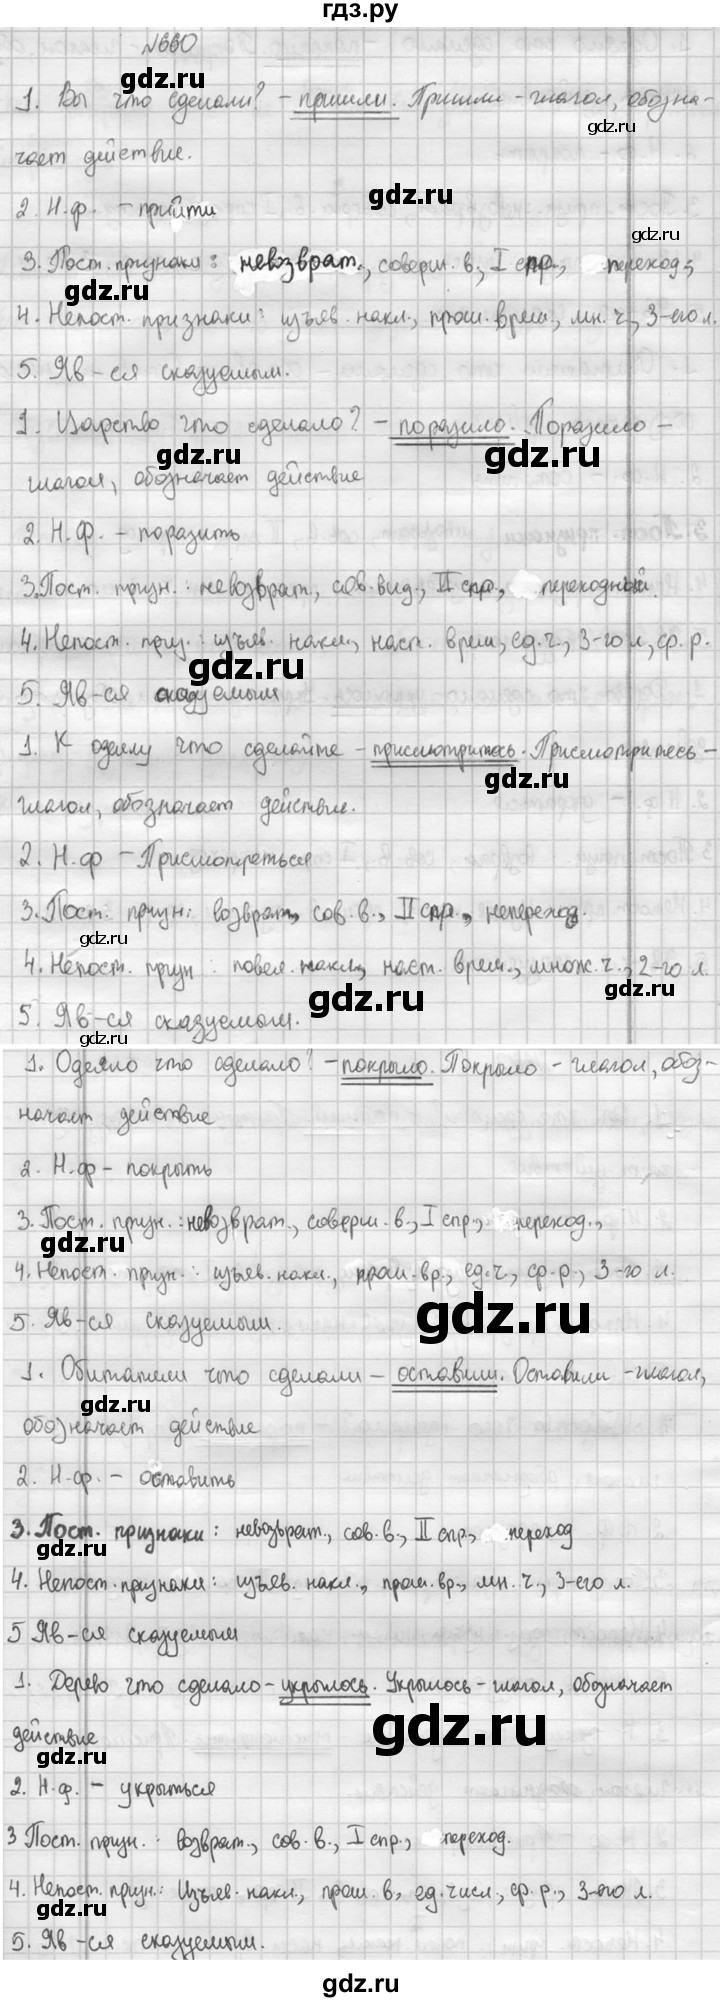 гдз.ру
№660
gdz.ru
1. Вы что сделали? - пришли. Пришли - глагол, обозна-
gdz.ru
чает действие.
gdz.ru
2. Н.ф. - прийти
3. Пост. признаки: невозврат., соверш. в., I спр., переход;
gdz.ru
4. Непост. признаки: изъяв. накл., прош. врем., мн. ч., 3-его л.
5. Яв-ся сказуемым.
1. Царство что сделало? - поразило. Поразило -
gdz.ru gdz.ru
глагол, обозначает действие
2. Н.Ф. - поразить
3. Пост. призн.: невозврат., сов. вид., II спр., переходный.
4. Непост. приз.: изъяв. накл., наст. врем., ед. ч., 3-го л., ср. р.
gdz.ru
5. Яв-ся сказуемым
1. К одеялу что сделайте - присмотритесь. Присмотритесь -
gdz.ru
глагол, обозначает действие.
2. Н.ф - Присмотреться
3. Пост. призн: возврат., сов. в., II спр., непереход.
gdz.ru
4. Непост. призн: повел. накл., наст. врем., множ. ч., 2-го л.
gdz.ru gdz.ru
5. Яв-ся сказуемым.
gdz.ru
1. Одеяло что сделало? - покрыло. Покрыло - глагол, обоз-
начает действие
2. Н.ф - покрыть
3. Пост. призн.: невозврат., соверш. в., I спр., переход.,
gdz.ru
4. Непост. призн.: изъяв. накл., прош. вр., ед. ч., ср. р., 3-го л.
5. Яв-ся сказуемым.
gdz.ru
1. Обитатели что сделали - оставили. Оставили - глагол,
gdz.ru
обозначает действие
2. Н.ф. - оставить
3. Пост. признаки: невозврат., сов. в., II спр., переход
gdz.ru
4. Непост. признаки: изъяв. накл., прош. вр., мн. ч., 3-его л.
5 Яв-ся сказуемым
1. Дерево что сделало - укрылось. Укрылось - глагол, обозначает
gdz.ru
действие
gdz.ru
2. Н.ф. - укрыться
3 Пост. призн.: возврат., сов. в., I спр., переход.
4. Непост. призн.: Изъяв. накл., прош. в., ед. числ., ср. р., 3-его л.
gdz.ru gdz.ru
5. Яв-ся сказуемым.
gdz.ru